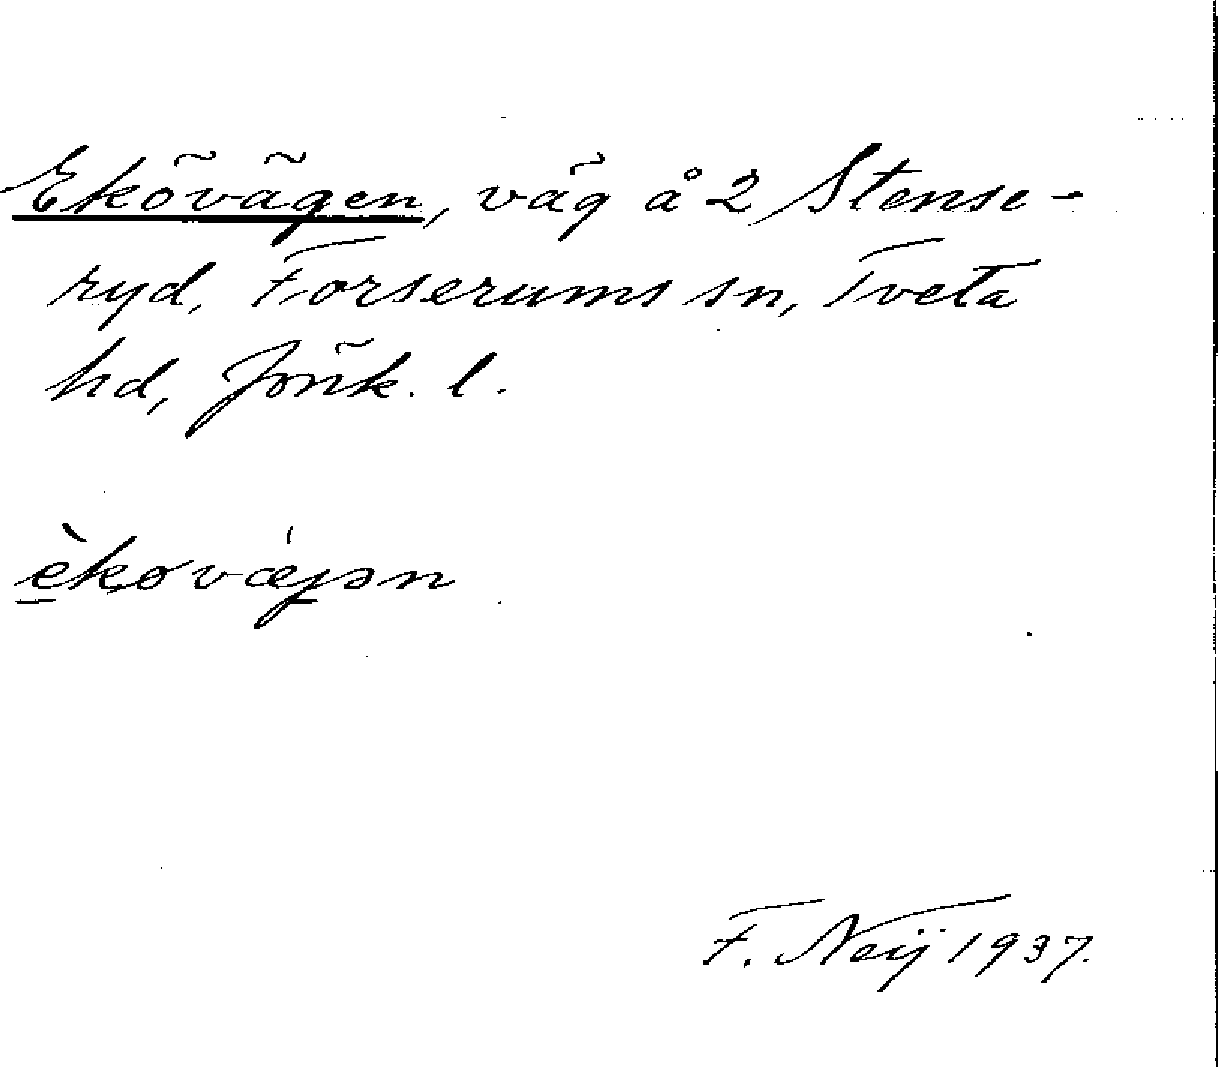 Ekövägen, väg å 2 Stense-
ryd, Forserums sn, Tveta
hd, Jönk. l.
èkovǽjən
F. Neij 1937.